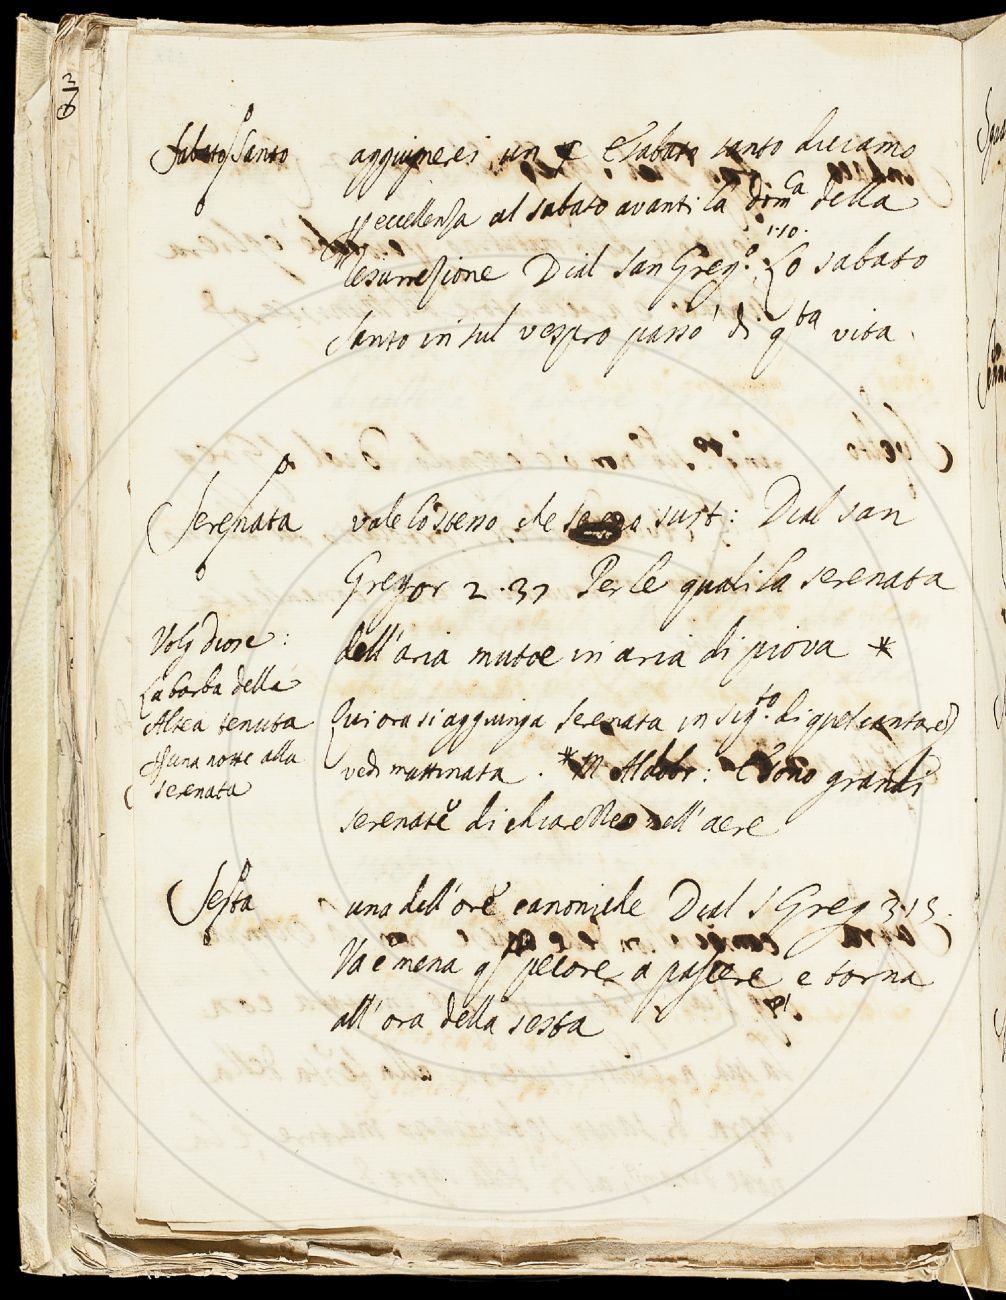 Sabato Santo
aggiugnerei un § E Sabato santo diciamo
p eccellenza al sabato avanti la Dom.ca della
resurrezione Dial San Greg.o 1.10. Lo sabato
Santo in sul vespro passò di q.ta vita
Serenata
vale lo stesso che surt: Dial San
Gregor 2.37 Per le quali la serenata
dell'aria mutoe in aria di piova *
Qui ora si aggiunga serenata in sig.to di quel cantare
vedi mattinata. * M Aldobr: E sono grandi
serenate di chiarezze nell'aere
Volg Diosc:
La barba della
Altea tenuta
p una notte alla
serenata
Sesta
una dell'ore canoniche Dial S Greg 3.15.
Va e mena q pecore a pascere e torna
all'ora della sesta